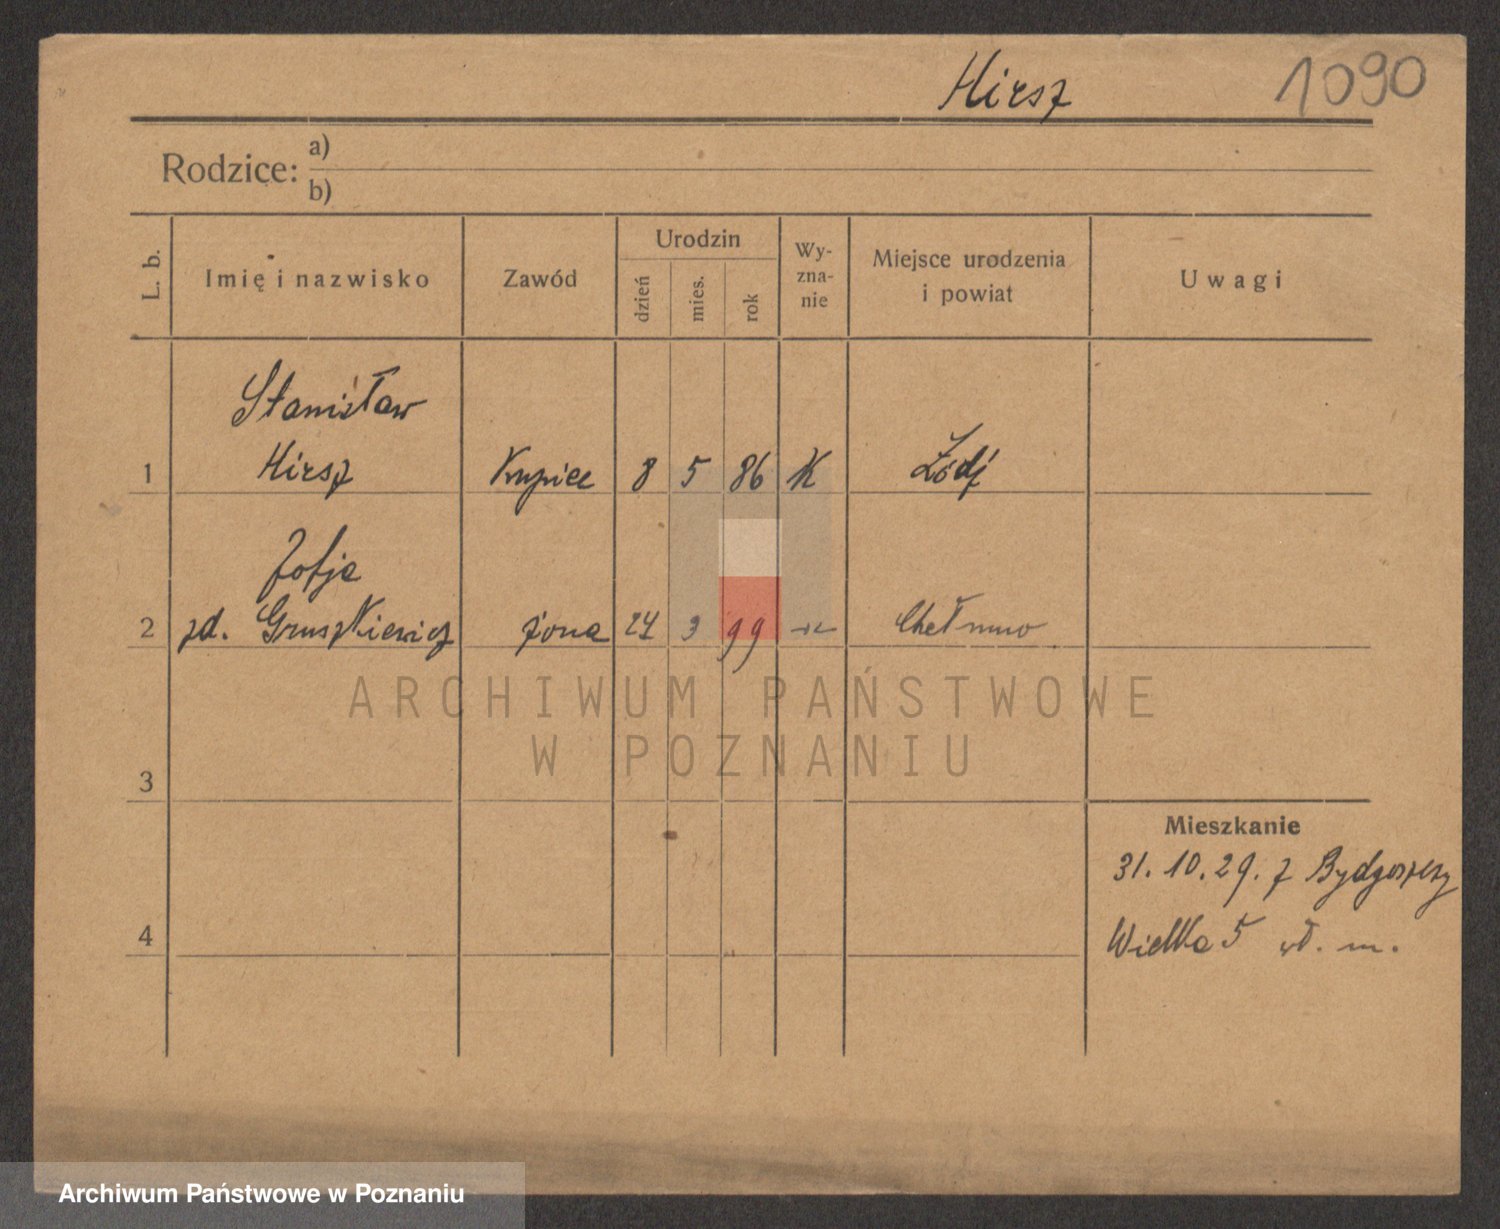 Hirsz 1090
Rodzice: a)
b)
L. b. Imię i nazwisko Zawód Urodzin dzień mies. rok Wy-
zna-
nie Miejsce urodzenia
i powiat Uwagi
Stanisław
1 Hirsz Kupiec 8 5 86 K Łódź
Zofja
2 zd. Gruszkiewicz żona 24 3 99 -"- Chełmno
ARCHIWUM PAŃSTWOWE
W POZNANIU
3
Mieszkanie
31. 10. 29. z Bydgoszczy
4 Wielka 5 wł. m.
Archiwum Państwowe w Poznaniu